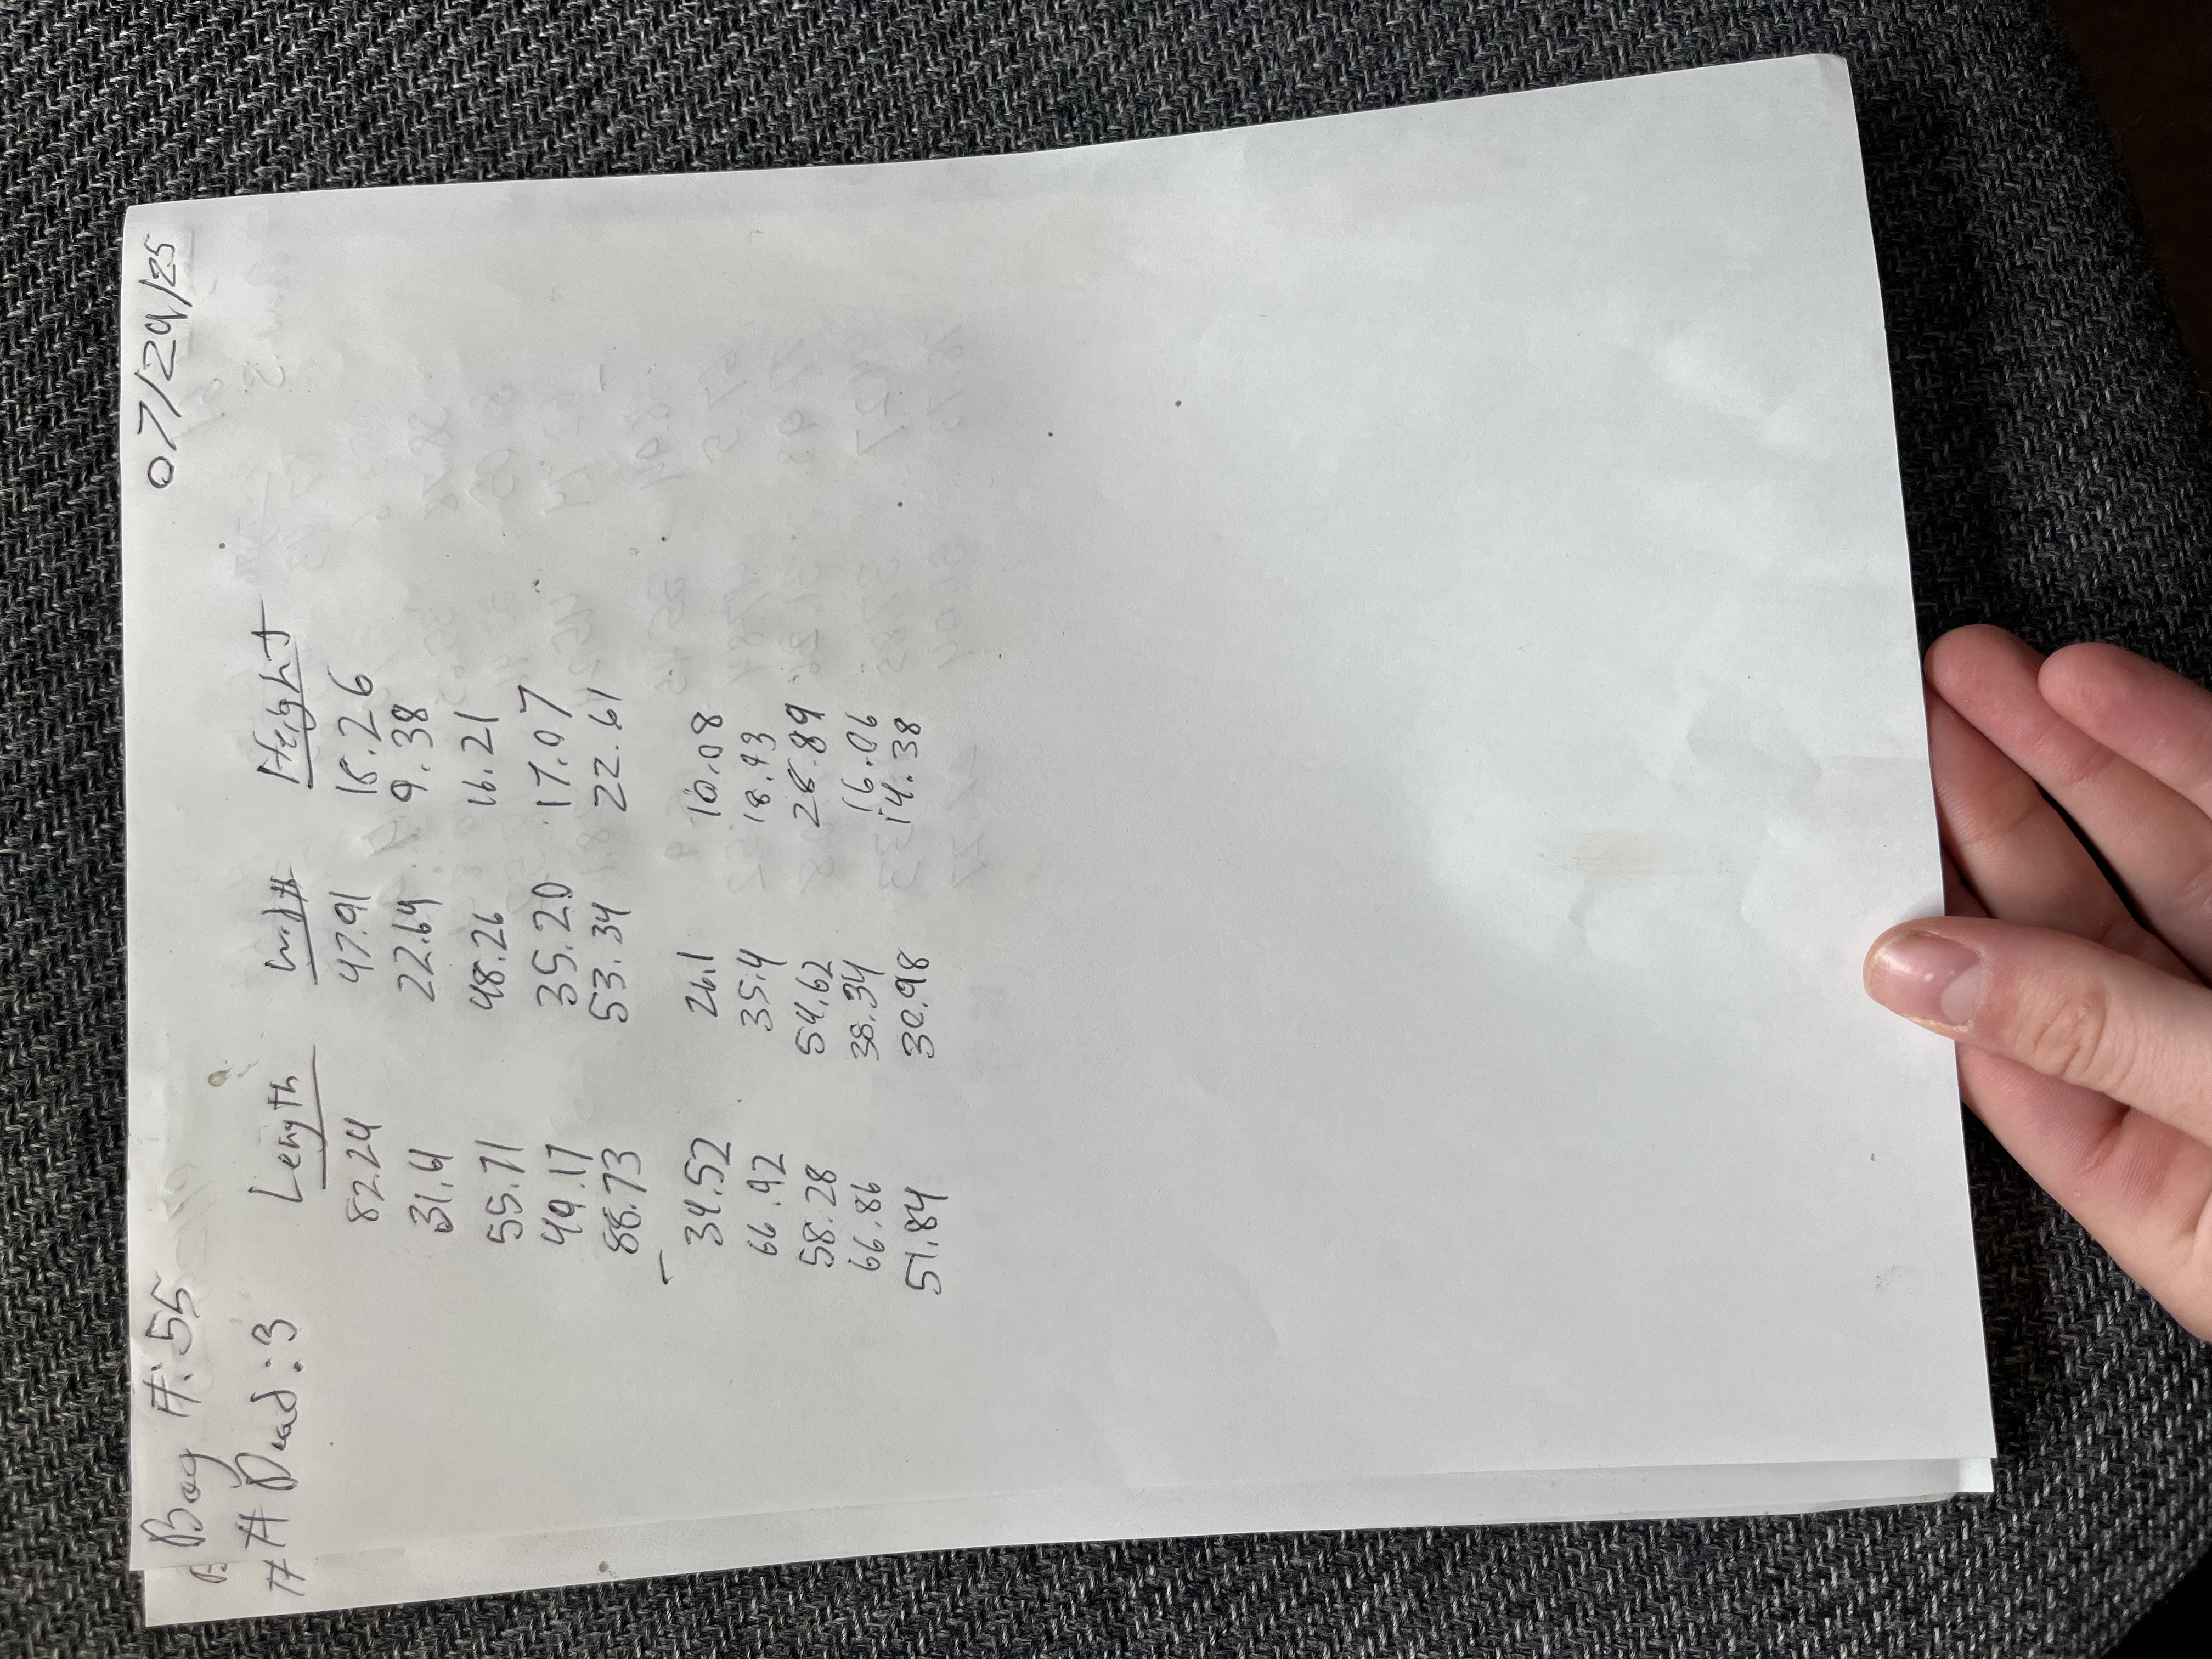 Bag #: 55 07/29/25
# Dead: 3 Length Width Height
82.24 47.91 18.26
31.61 22.64 9.38
55.71 48.26 16.21
49.17 35.20 17.07
88.73 53.34 22.61
–
34.52 26.1 10.08
66.92 35.4 18.93
58.28 54.62 28.89
66.86 38.34 16.06
51.84 30.98 14.38